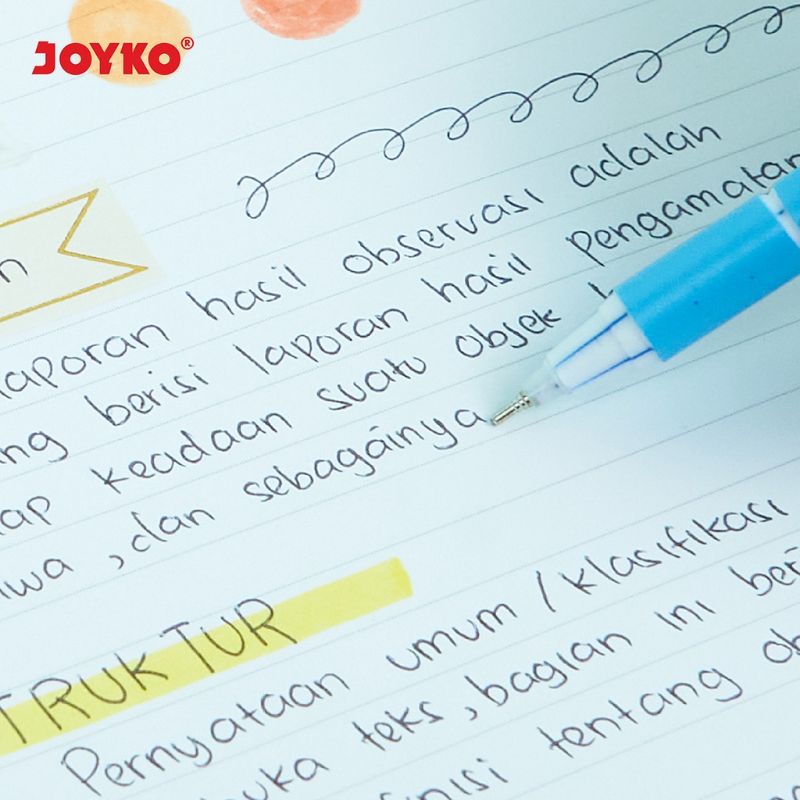 JOYKO®
n
laporan hasil observasi adalah
ng berisi laporan hasil pengamatan
ap keadaan suatu objek
iwa, dan sebagainya
TRUKTUR
Pernyataan umum / klasifikasi
buka teks, bagian ini beri
finisi tentang ob